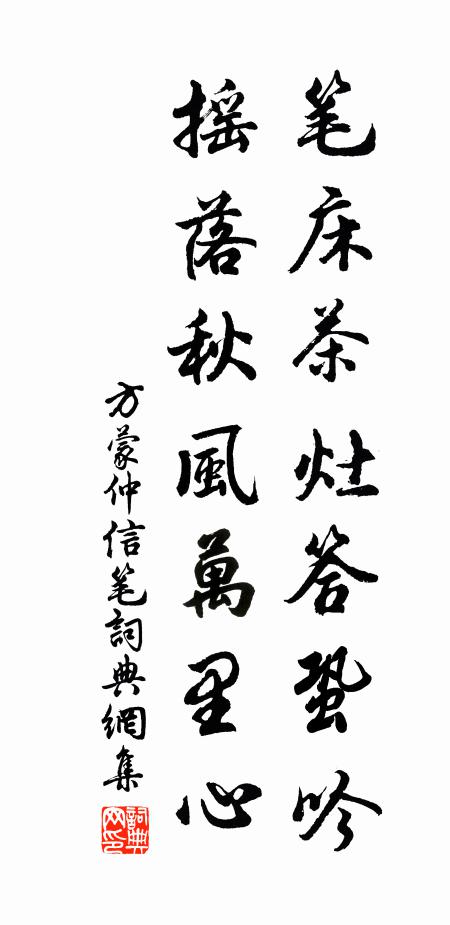 笔床茶灶答蛩吟
摇落秋風萬里心
方蒙仲信笔詞典網集
詞典网印